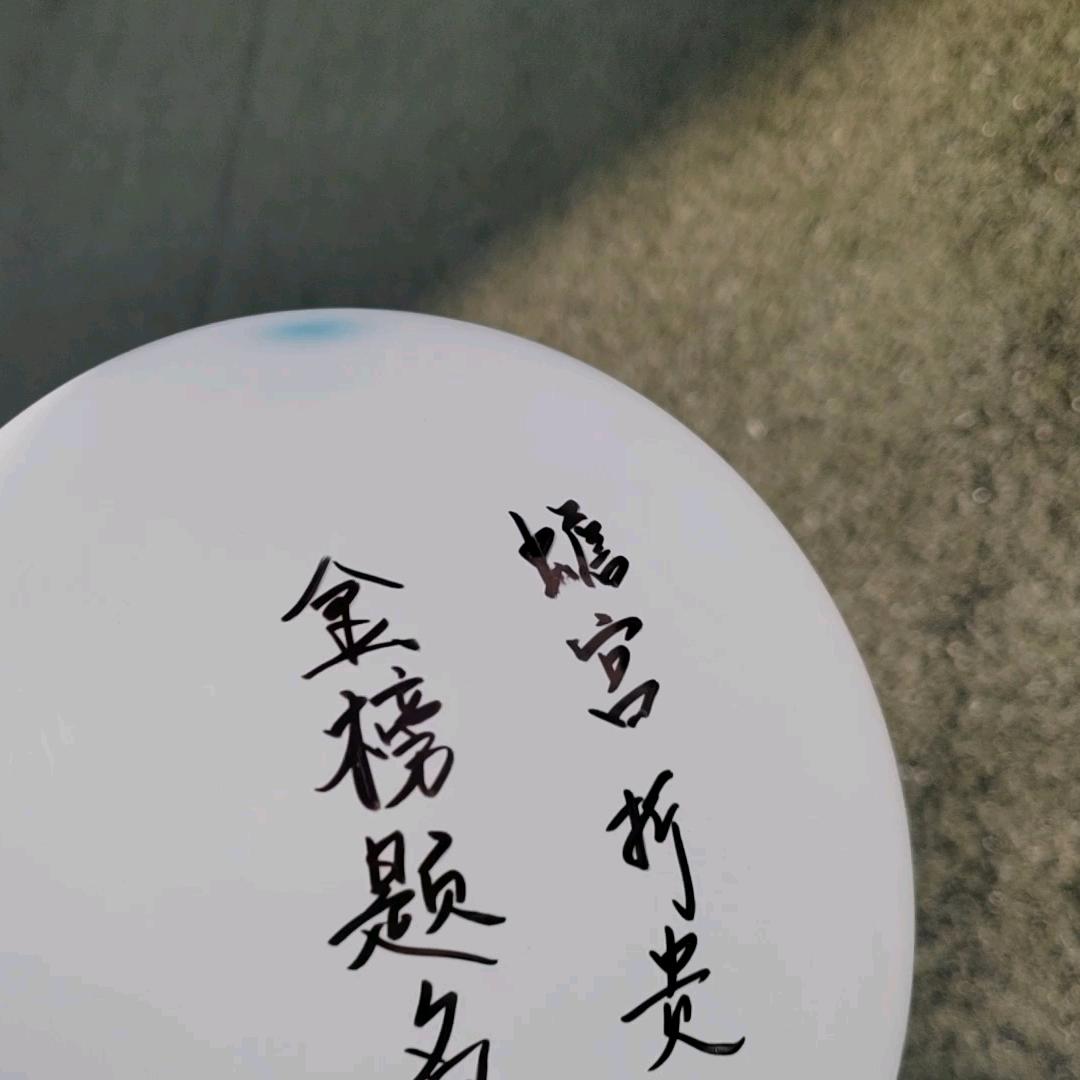 蟾宫折贵
金榜题名